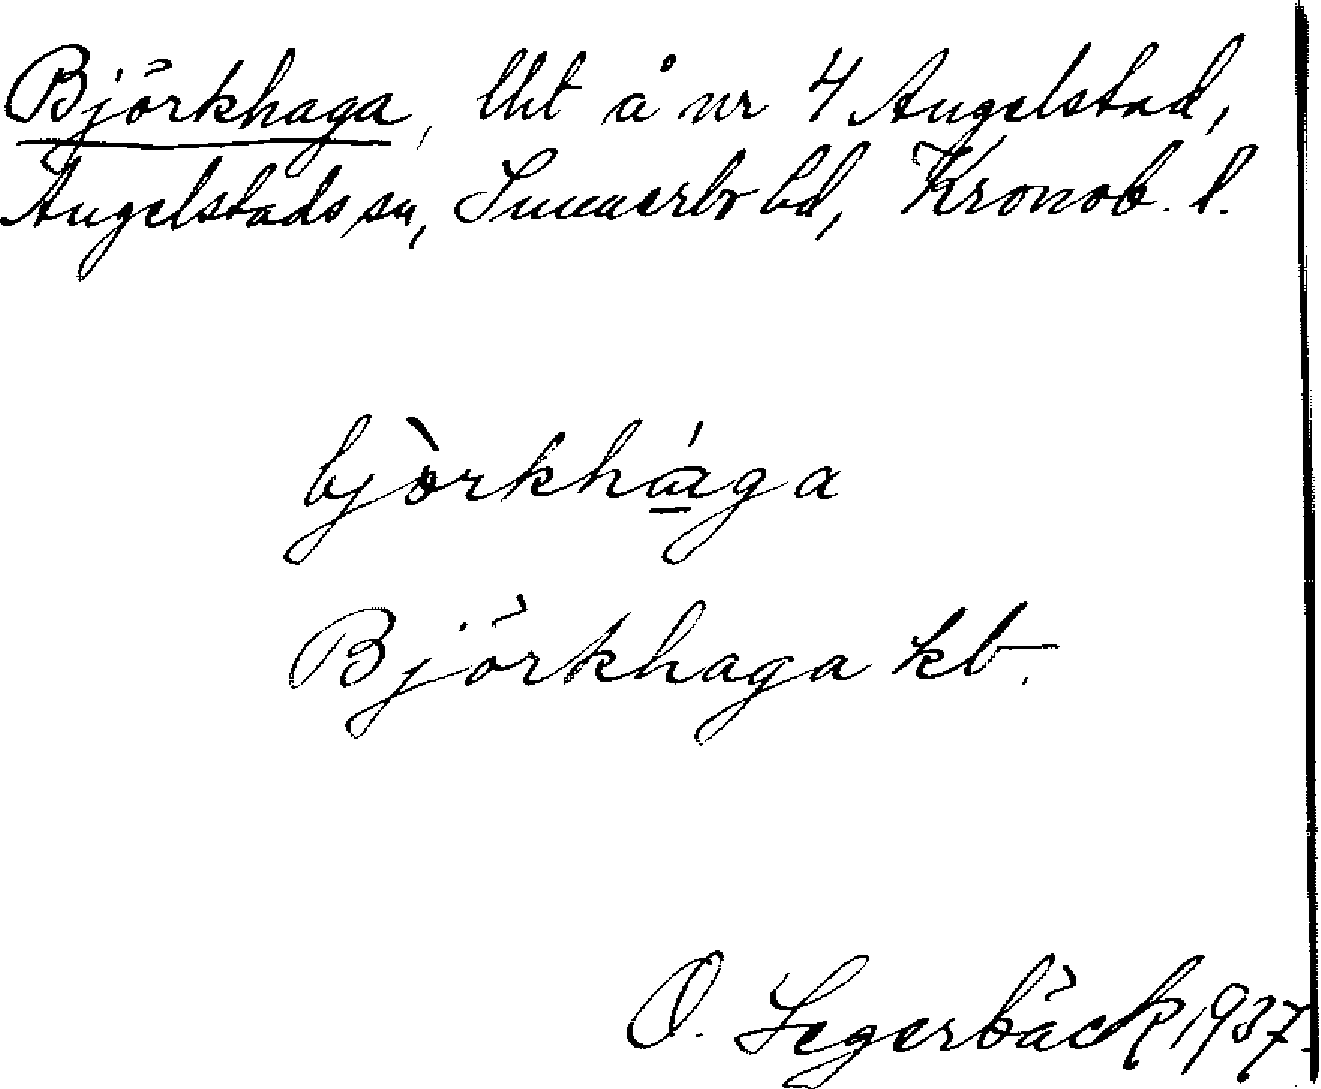 Björkhaga, lht å nr 4 Angelstad,
Angelstads sn, Sunnerbo hd, Kronob. l.
bjòrkhá̱ga
Björkhaga kb.
O. Segerbäck 1937.